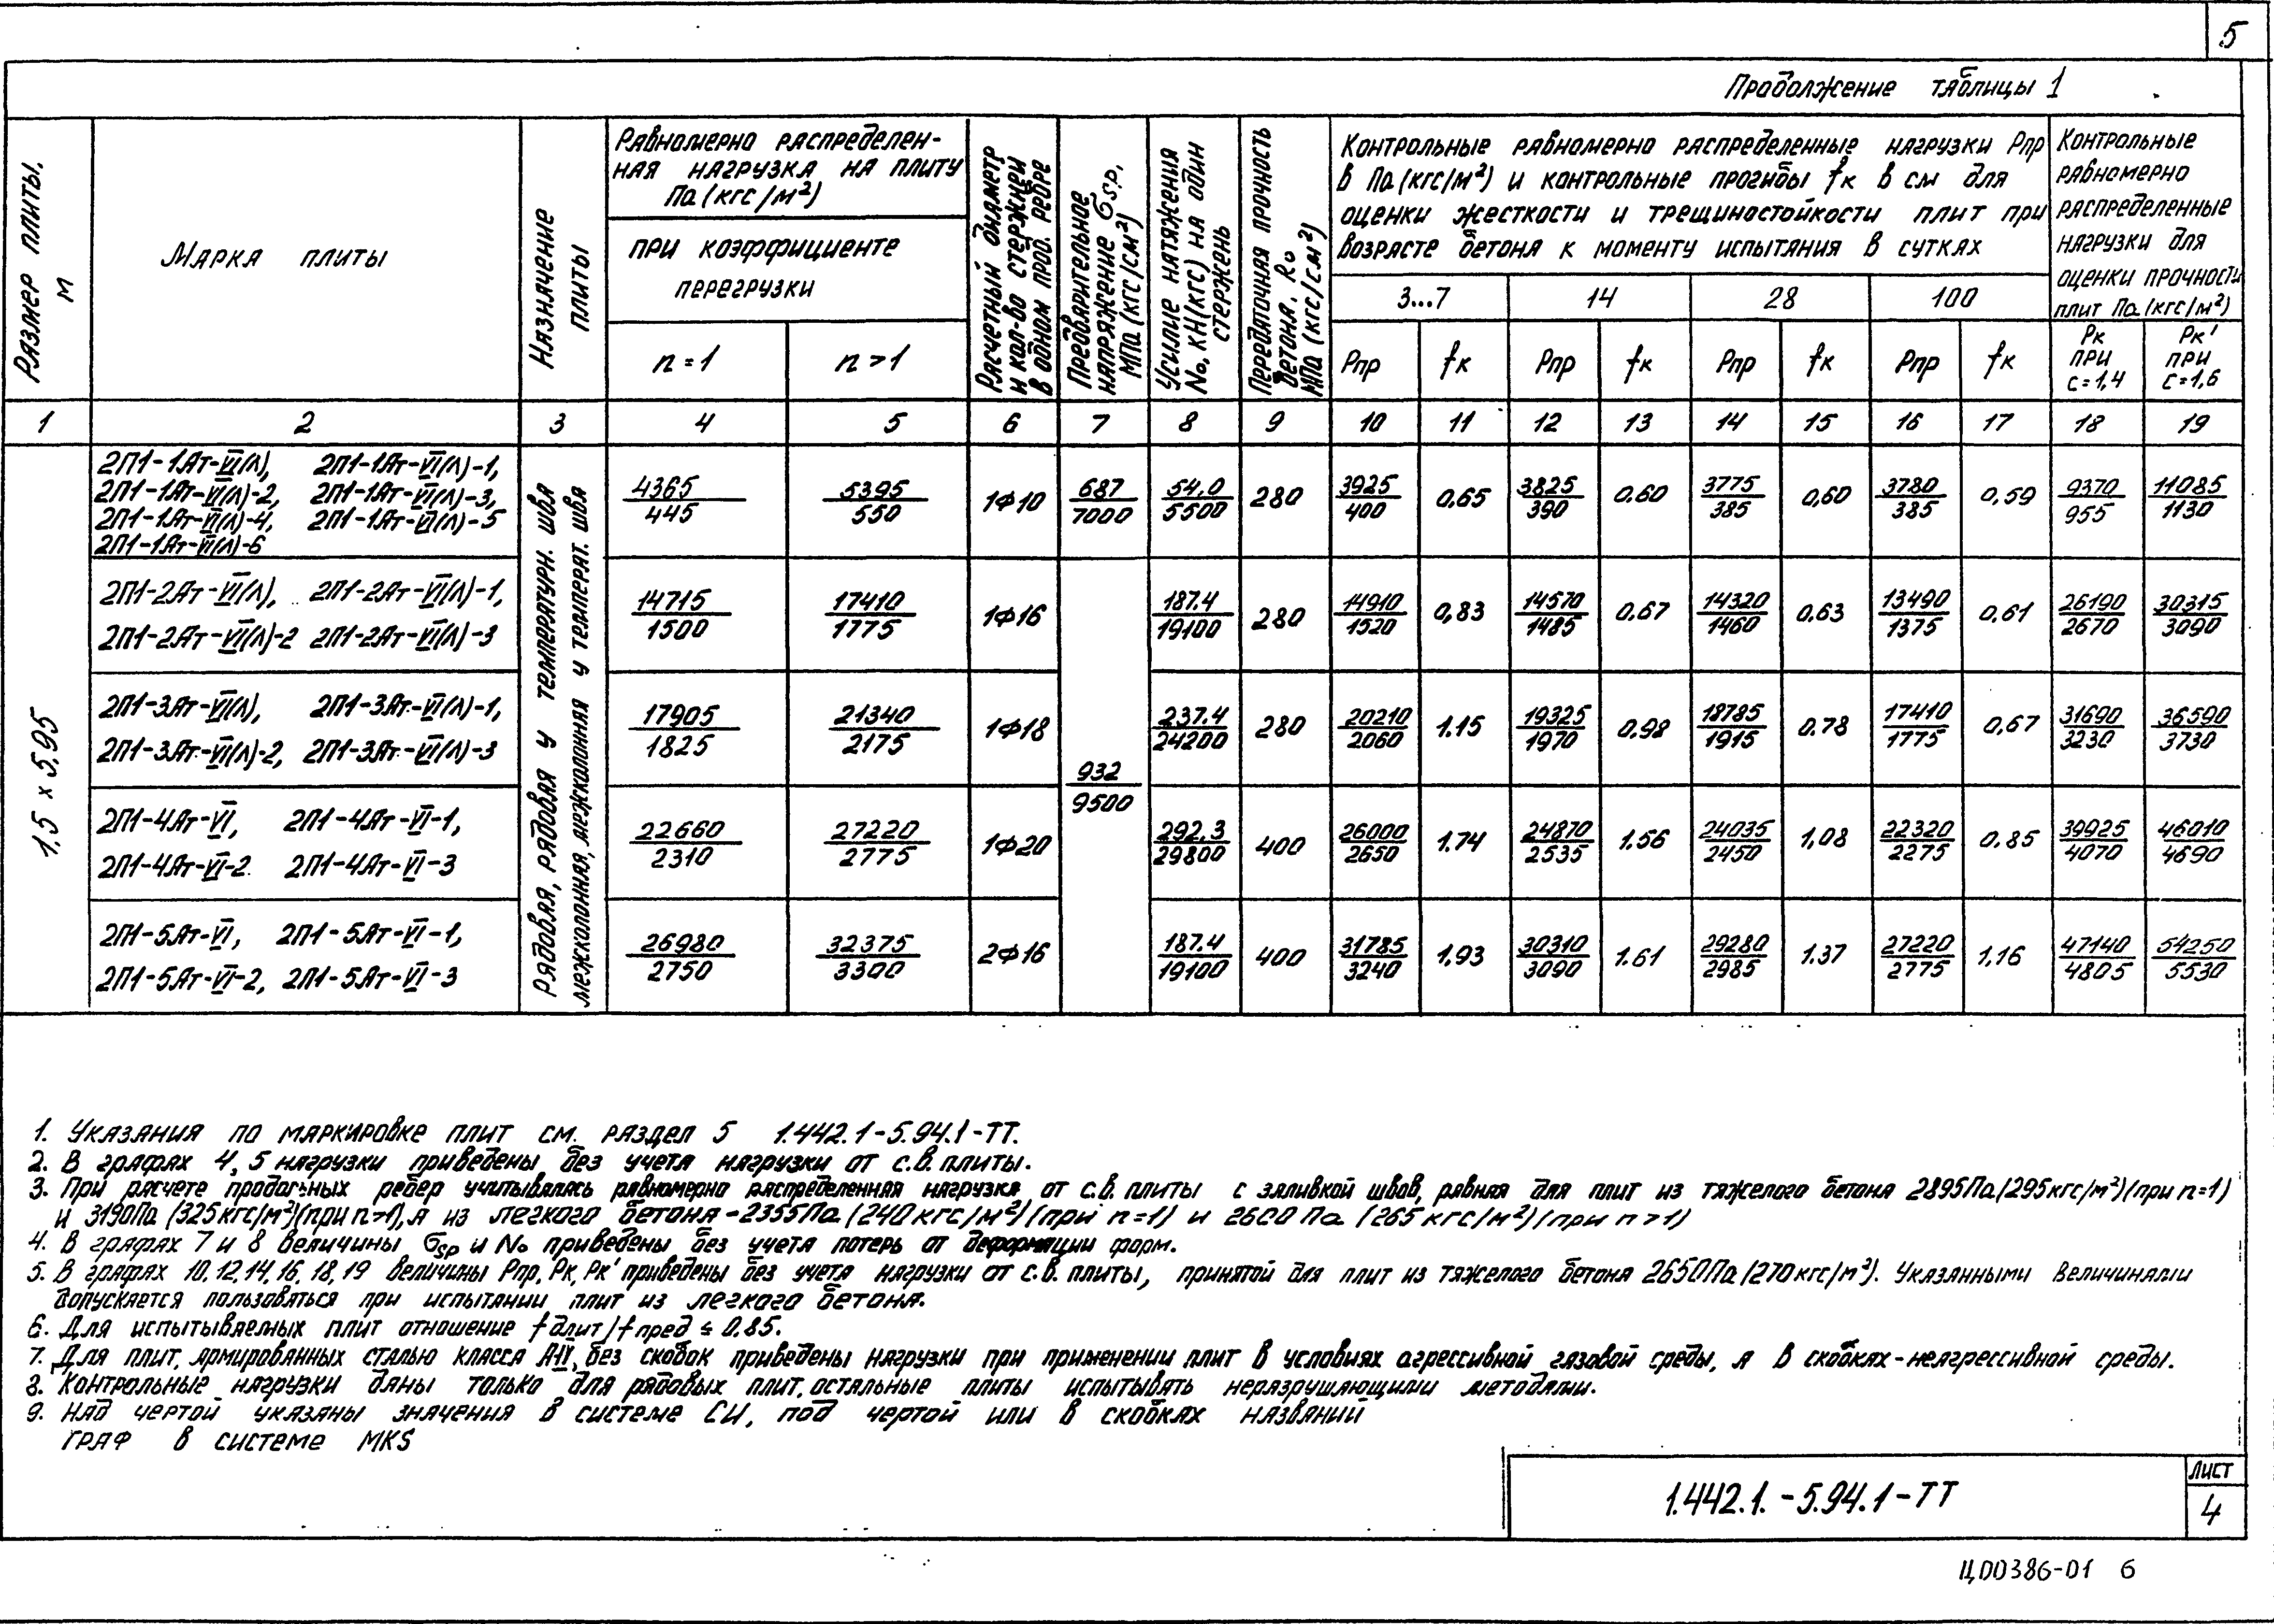 5
Продолжение таблицы 1
Размер плиты, м
Марка плиты
Назначение плиты
Равномерно распределен-
ная нагрузка на плиту
Па (кгс/м²)
при коэффициенте
перегрузки
n = 1
n > 1
Расчетный диаметр
и кол-во стержней
в одном прод. ребре
Предварительное
напряжение σsp,
МПа (кгс/см²)
Усилие натяжения
No, кН(кгс) на один
стержень
Передаточная прочность
бетона, Ro
МПа (кгс/см²)
Контрольные равномерно распределенные нагрузки Рпр
в Па (кгс/м²) и контрольные прогибы fк в см для
оценки жесткости и трещиностойкости плит при
возрасте бетона к моменту испытания в сутках
3...7 14 28 100
Рпр fк Рпр fк Рпр fк Рпр fк
Контрольные
равномерно
распределенные
нагрузки для
оценки прочности
плит Па (кгс/м²)
Рк при с=1,4
Рк' при с=1,6
1 2 3 4 5 6 7 8 9 10 11 12 13 14 15 16 17 18 19
1,5 х 5,95
Рядовая, рядовая у температурн. шва
межколонная, межколонная у температ. шва
2П1-1Ат-VI(Л), 2П1-1Ат-VI(Л)-1,
2П1-1Ат-VI(Л)-2, 2П1-1Ат-VI(Л)-3,
2П1-1Ат-VI(Л)-4, 2П1-1Ат-VI(Л)-5
2П1-1Ат-VI(Л)-6
4365/445 5395/550 1Ф10 687/7000 54.0/5500 280 3925/400 0.65 3825/390 0.60 3775/385 0,60 3780/385 0,59 9370/955 11085/1130
2П1-2Ат-VI(Л), 2П1-2Ат-VI(Л)-1,
2П1-2Ат-VI(Л)-2 2П1-2Ат-VI(Л)-3
14715/1500 17410/1775 1Ф16 187.4/19100 280 14910/1520 0,83 14570/1485 0.67 14320/1460 0.63 13490/1375 0,61 26190/2670 30315/3090
2П1-3Ат-VI(Л), 2П1-3Ат-VI(Л)-1,
2П1-3Ат-VI(Л)-2, 2П1-3Ат-VI(Л)-3
17905/1825 21340/2175 1Ф18 237.4/24200 280 20210/2060 1.15 19325/1970 0.98 18785/1915 0.78 17410/1775 0,67 31690/3230 36590/3730
932/9500
2П1-4Ат-VI, 2П1-4Ат-VI-1,
2П1-4Ат-VI-2. 2П1-4Ат-VI-3
22660/2310 27220/2775 1Ф20 292.3/29800 400 26000/2650 1.74 24870/2535 1.56 24035/2450 1,08 22320/2275 0.85 39925/4070 46010/4690
2П1-5Ат-VI, 2П1-5Ат-VI-1,
2П1-5Ат-VI-2, 2П1-5Ат-VI-3
26980/2750 32375/3300 2Ф16 187.4/19100 400 31785/3240 1.93 30310/3090 1.61 29280/2985 1.37 27220/2775 1,16 47140/4805 54250/5530
1. Указания по маркировке плит см. раздел 5 1.442.1-5.94.1-ТТ.
2. В графах 4, 5 нагрузки приведены без учета нагрузки от с.в. плиты.
3. При расчете продольных ребер учитывалась равномерно распределенная нагрузка от с.в. плиты с заливкой швов, равная для плит из тяжелого бетона 2895Па (295кгс/м²)(при n=1)
и 3190Па (325кгс/м²)(при n>1), а из легкого бетона-2355Па (240кгс/м²)(при n=1) и 2600Па (265кгс/м²)(при n>1)
4. В графах 7 и 8 величины σsp и No приведены без учета потерь от деформации форм.
5. В графах 10, 12, 14, 16, 18, 19 величины Рпр, Рк, Рк' приведены без учета нагрузки от с.в. плиты, принятой для плит из тяжелого бетона 2650Па (270кгс/м²). Указанными величинами
допускается пользоваться при испытании плит из легкого бетона.
6. Для испытываемых плит отношение fдлит/fпред ≤ 0.85.
7. Для плит, армированных сталью класса без скобок приведены нагрузки при применении плит в условиях агрессивной газовой среды, а в скобках-неагрессивной среды.
8. Контрольные нагрузки даны только для рядовых плит, остальные плиты испытывать неразрушающими методами.
9. Над чертой указаны значения в системе СИ, под чертой или в скобках названий
граф в системе MKS
1.442.1.-5.94.1-ТТ
Лист
4
Ц00386-01 6